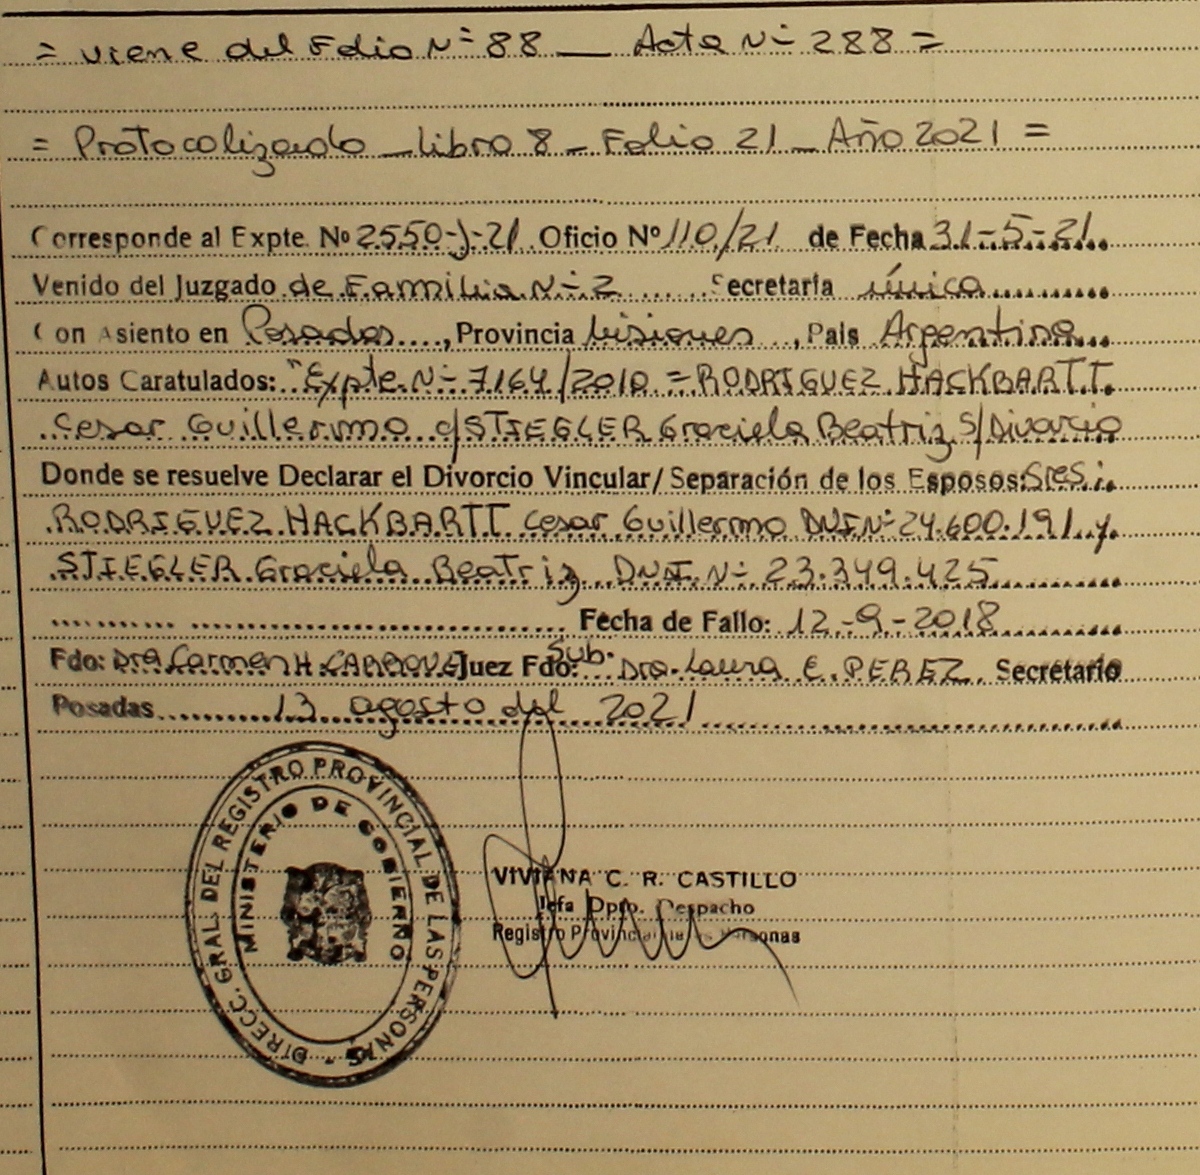 = viene del Folio Nº 88 — Acta Nº 288 =
= Protocolizado - Libro 8 - Folio 21 - Año 2021 =
Corresponde al Expte. Nº 2550-J-21 Oficio Nº 110/21 de Fecha 31-5-21
Venido del Juzgado de Familia Nº 2 Secretaria única
Con Asiento en Posadas, Provincia Misiones, Pais Argentina
Autos Caratulados: "Expte. Nº 7164/2010 = RODRIGUEZ HACKBARTT
Cesar Guillermo c/ STIEGLER Graciela Beatriz S/Divorcio
Donde se resuelve Declarar el Divorcio Vincular/ Separación de los Esposos: Sres:
RODRIGUEZ HACKBARTT Cesar Guillermo DNI Nº 24.600.191 y
STIEGLER Graciela Beatriz DNI Nº 23.349.425
Fecha de Fallo: 12-9-2018
Fdo: Dra Carmen H. Juez Fdo: Sub. Dra. Laura E. PEREZ Secretario
Posadas 13 agosto del 2021
DIRECC. GRAL. DEL REGISTRO PROVINCIAL DE LAS PERSONAS
MINISTERIO DE GOBIERNO
VIVIANA C. R. CASTILLO
Jefa Dpto. Despacho
Registro Provincial de las Personas